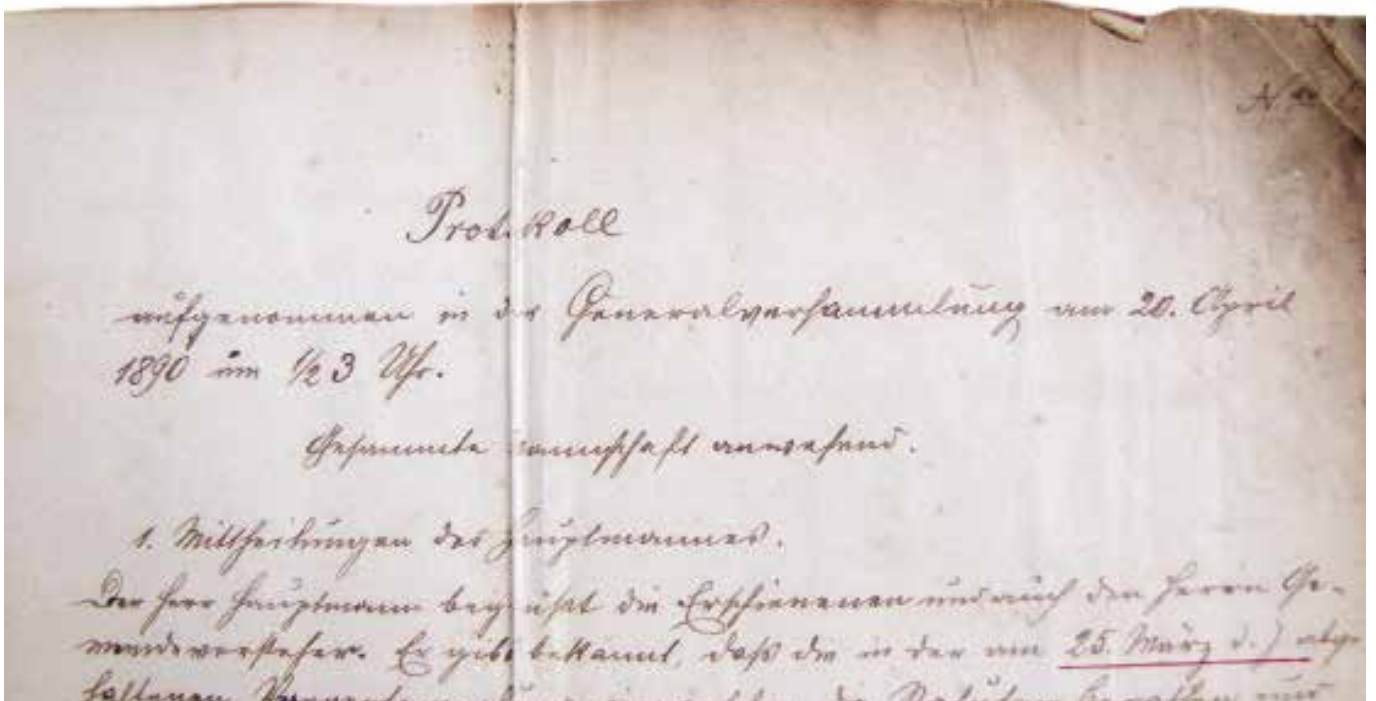 Protokoll
aufgenommen in der Generalversammlung am 20. April
1890 um 1/2 3 Uhr.
Gesammte Mannschaft anwesend.
1. Mittheilungen des Hauptmannes.
Der Herr Hauptmann begrüßt die Erschienenen und auch den Herrn Ge-
meindevorsteher. Er gibt bekannt, daß die in der am 25. März d. J. abge-
haltenen die Statuten